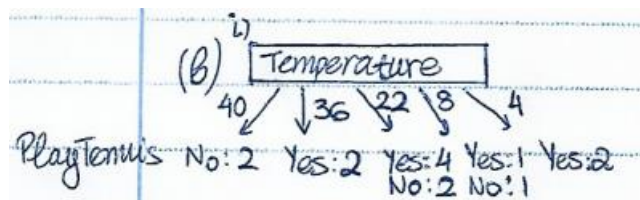 i)
(B) Temperature
40 36 22 8 4
PlayTennis No: 2 Yes: 2 Yes: 4 Yes: 1 Yes: 2
No: 2 No: 1